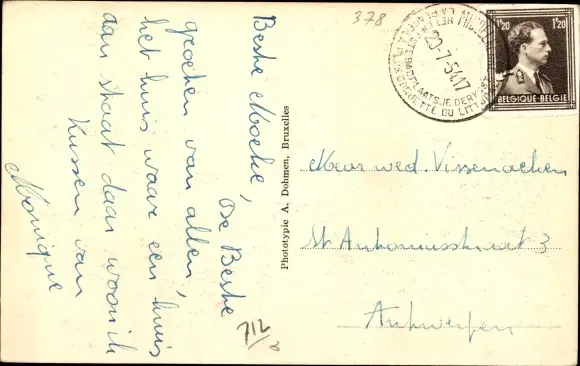 378
Beste Moeke,
De Beste
groeten van allen,
het huis waar een kruis
aan staat daar woon ik
Kussen van
Monique
712
Phototypie A. Dohmen, Bruxelles
29-7-54 17
1'20 1'20
BELGIQUE-BELGIE
Mevr wed. Vissenaeken
St Antoniusstraat 3
Antwerpen